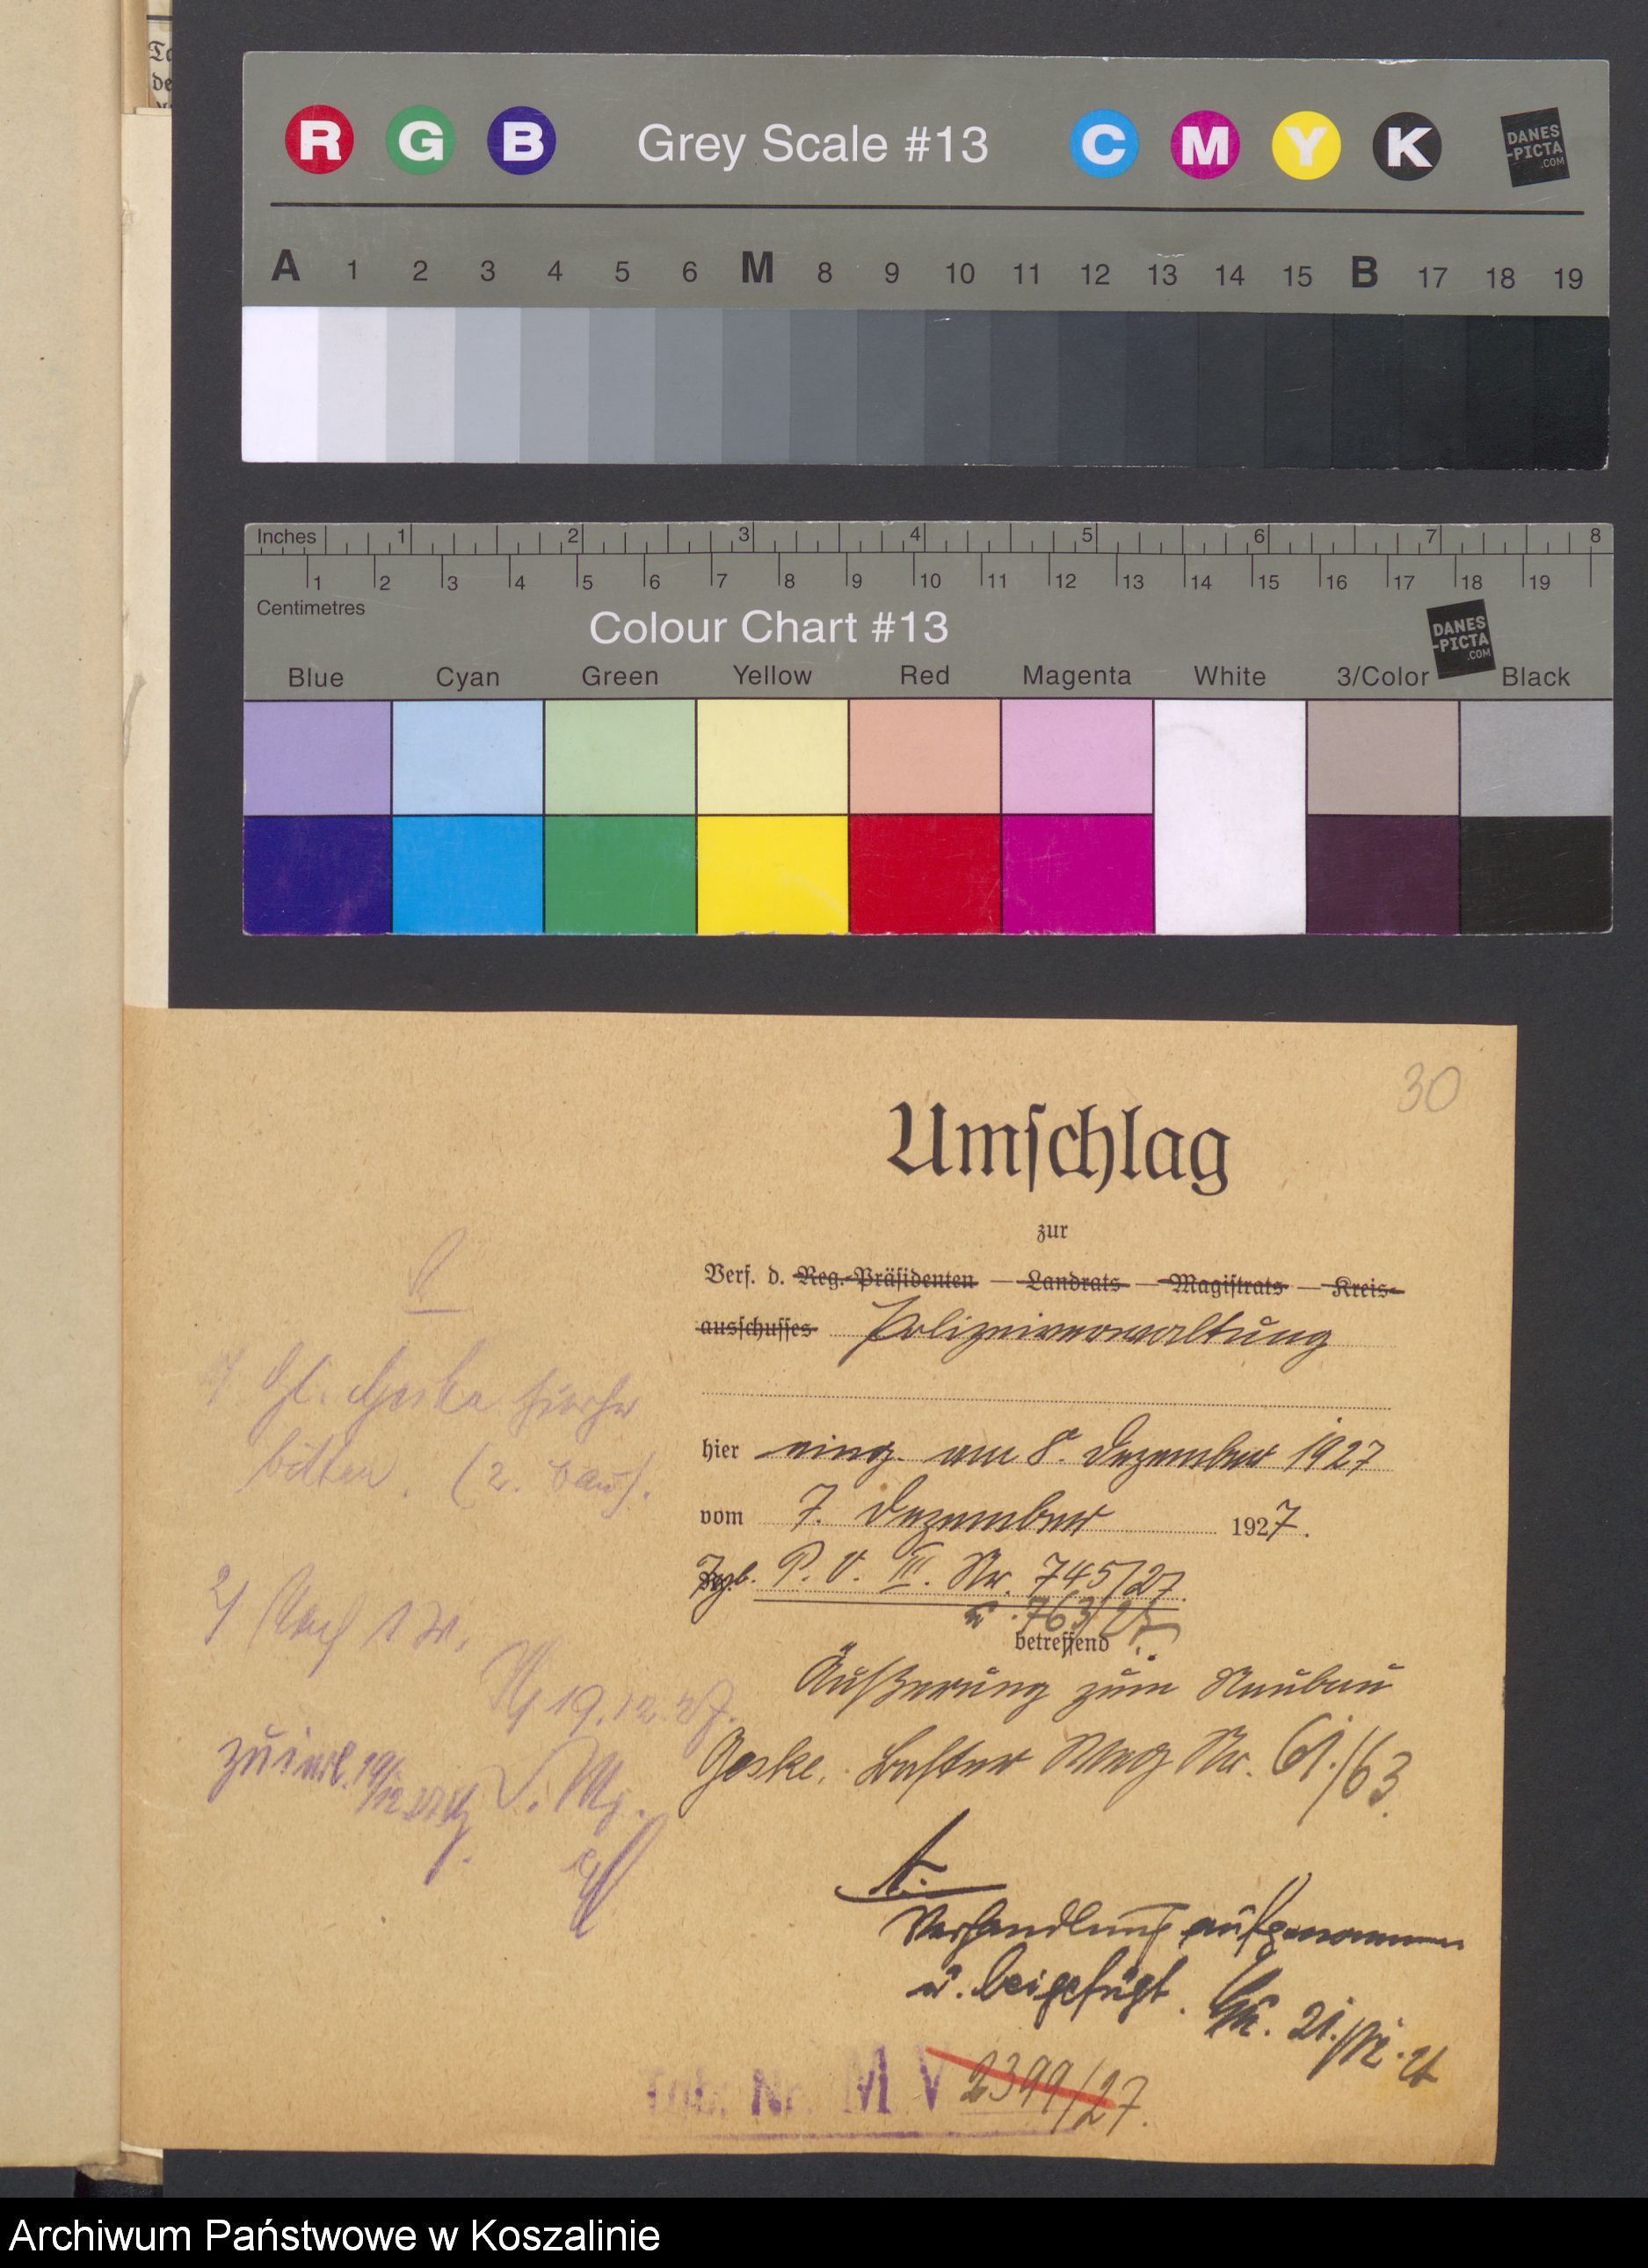 R G B Grey Scale #13 C M Y K DANES -PICTA .COM
A 1 2 3 4 5 6 M 8 9 10 11 12 13 14 15 B 17 18 19
Inches 1 2 3 4 5 6 7 8
1 2 3 4 5 6 7 8 9 10 11 12 13 14 15 16 17 18 19
Centimetres
Colour Chart #13 DANES -PICTA .COM
Blue Cyan Green Yellow Red Magenta White 3/Color Black
30
Umſchlag
zur
Verf. d. Reg.-Präſidenten — Landrats — Magiſtrats — Kreis-
ausſchuſſes Polizeiverwaltung
hier eing. am 8. Dezember 1927
vom 7. Dezember 1927.
P. V. III. Nr. 745/27
u. 763/27
betreffend
Äußerung zum Neubau
Geske, Weg Nr. 61/63.
A.
Verhandlung aufgenommen
u. beigefügt. 21./12.
Tgb. Nr. M V 2399/27.
Geske hierher
bitten.
2)
19.12.27.
19/12 27
Archiwum Państwowe w Koszalinie